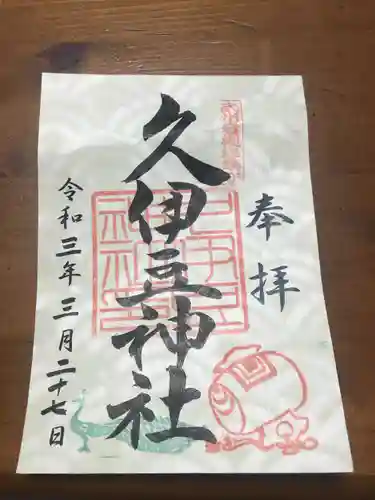 奉拝
久伊豆神社
令和三年三月二十七日